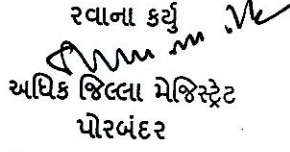 રવાના કર્યુ
અધિક જિલ્લા મેજિસ્ટ્રેટ
પોરબંદર